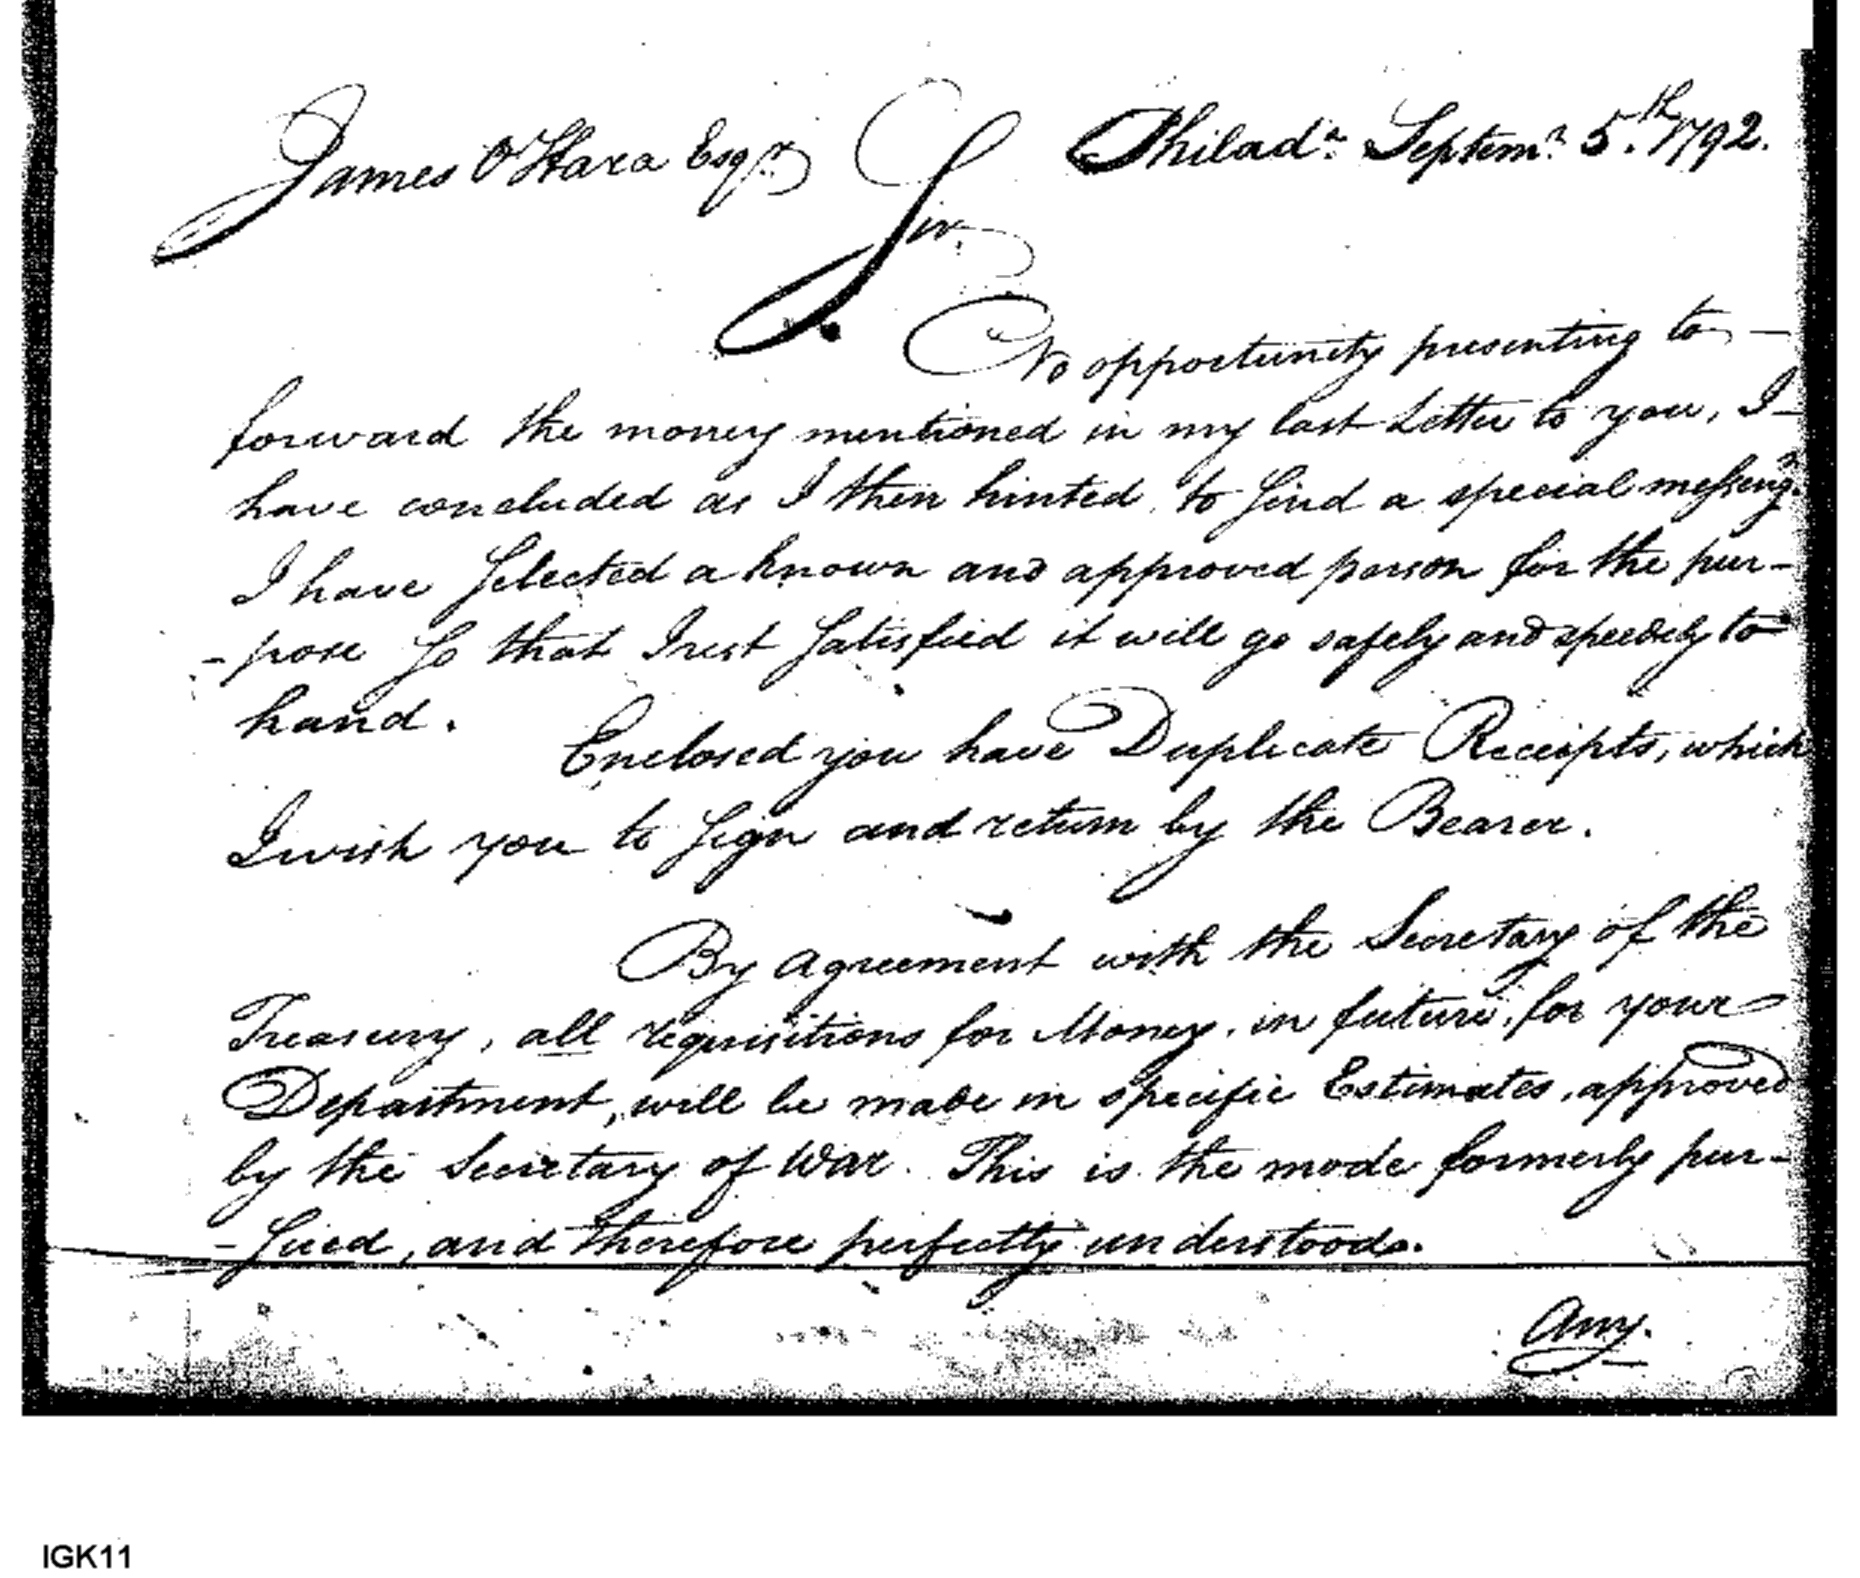 James O'Hara Esqr. Philada. Septemr. 5th. 1792.
Sir.
No opportunity presenting to -
forward the money mentioned in my last Letter to you, I -
have concluded as I then hinted, to send a special messengr.
I have selected a known and approved person for the pur-
-pose so that I rest satisfied it will go safely and speedily to
hand.
Enclosed you have Duplicate Receipts, which
I wish you to sign and return by the Bearer.
By agreement with the Secretary of the
Treasury, all requisitions for Money, in future, for your
Department, will be made in specific Estimates, approved
by the Secretary of War. This is the mode formerly pur-
-sued, and therefore perfectly understood.
Any.
IGK11